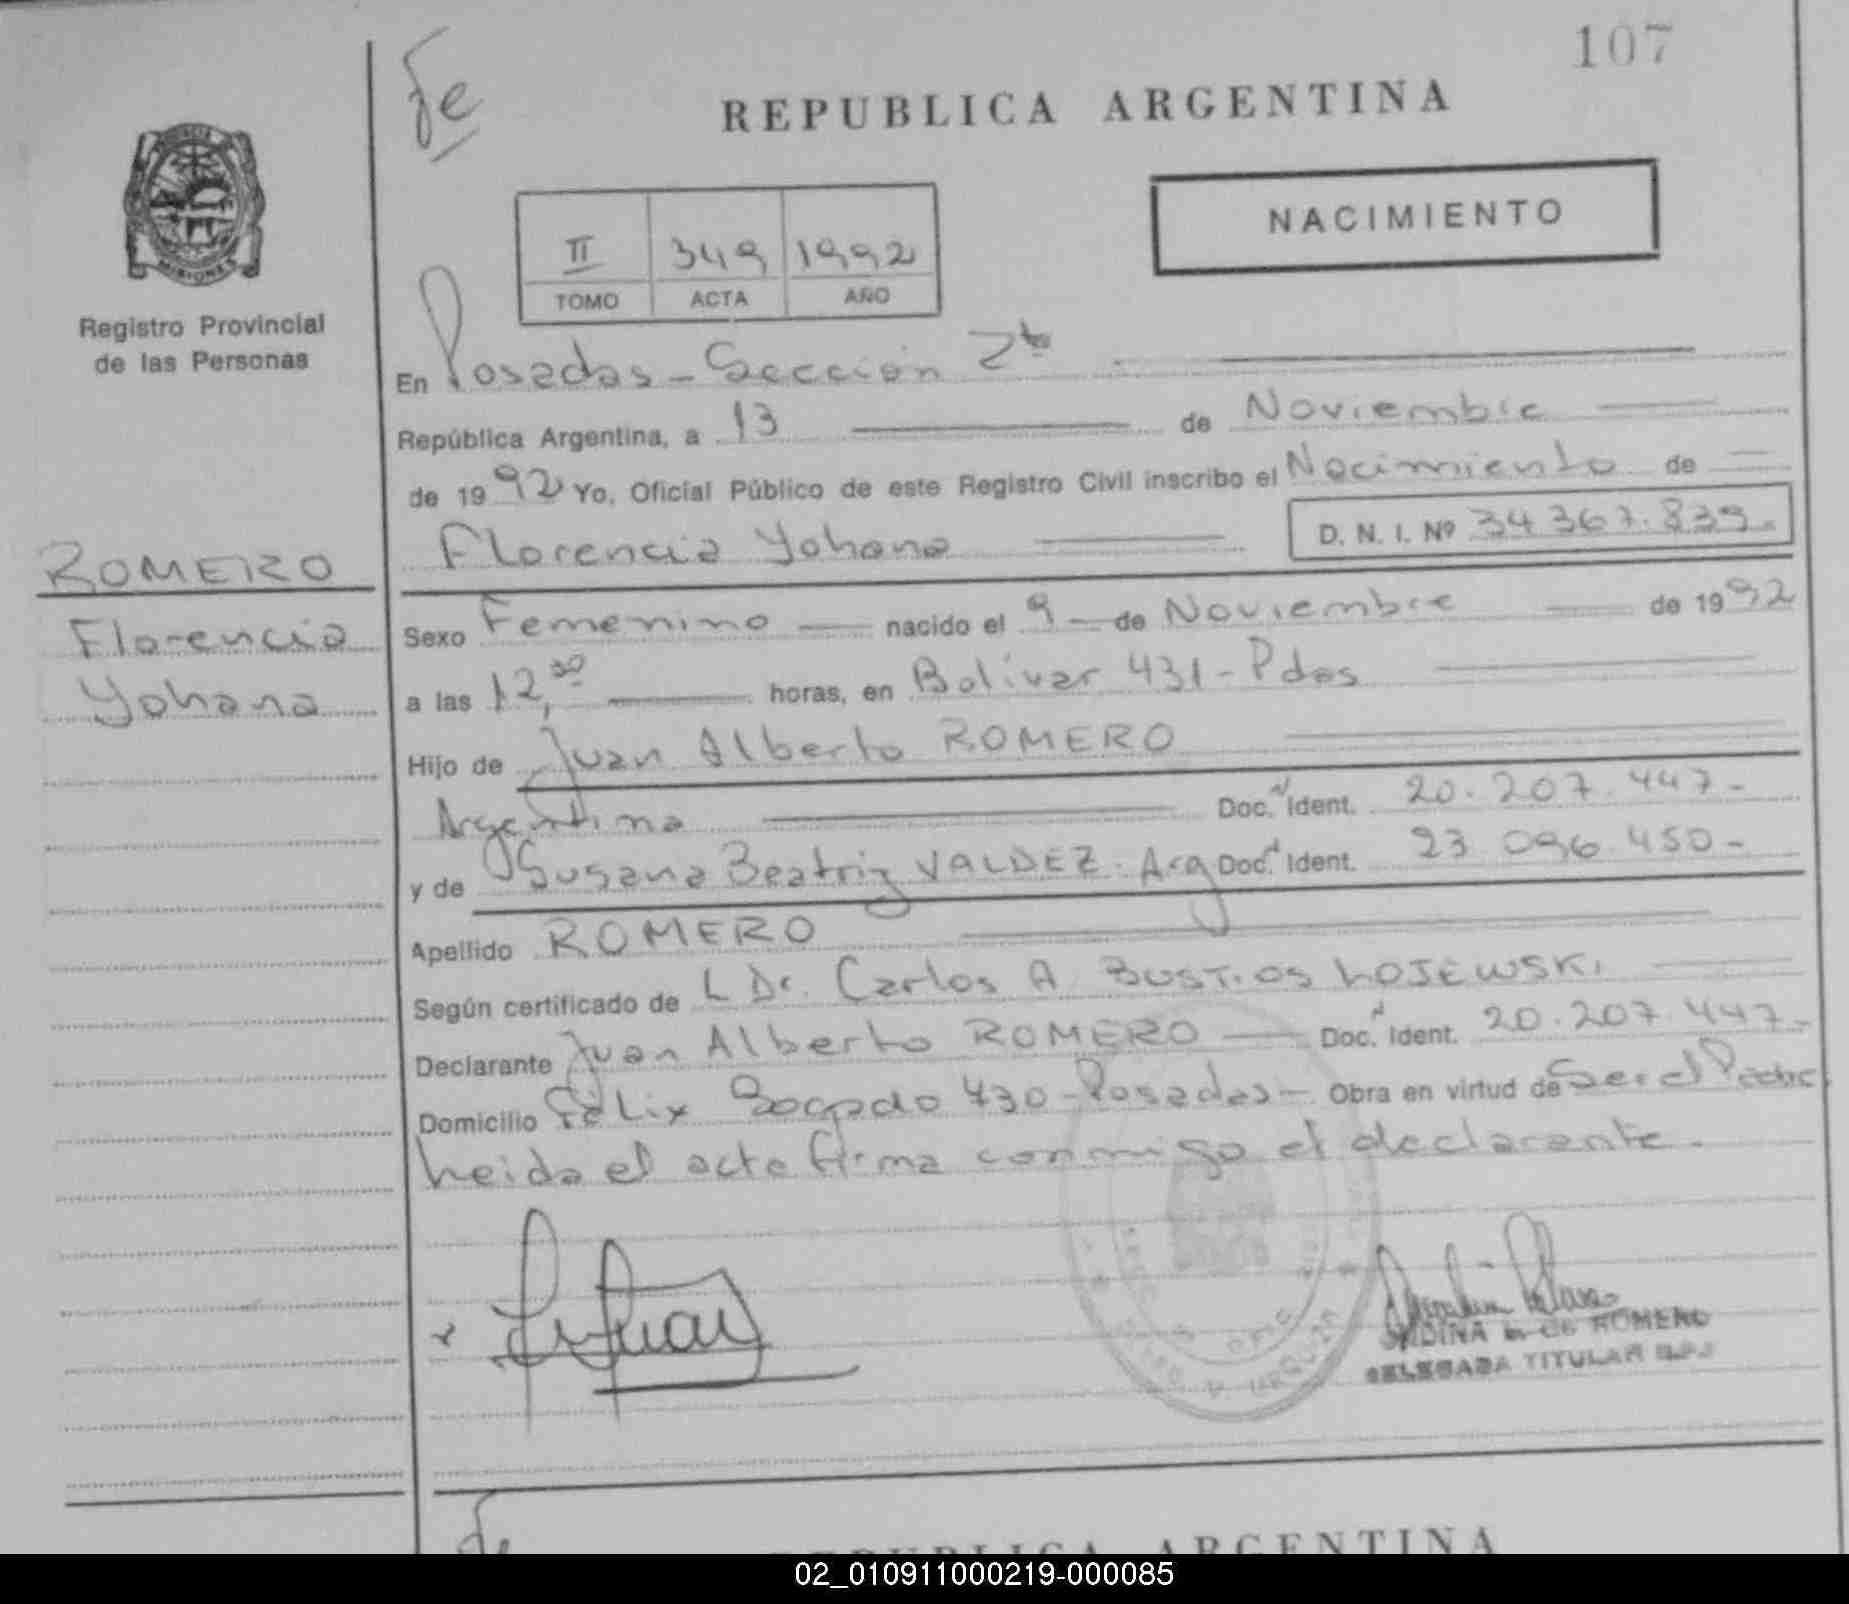 107
Fe
REPUBLICA ARGENTINA
NACIMIENTO
II 349 1992
TOMO ACTA AÑO
MISIONES
Registro Provincial
de las Personas
En Posadas - Sección 2da
República Argentina, a 13 de Noviembre
de 1992 Yo, Oficial Público de este Registro Civil inscribo el Nacimiento de
Florencia Yohana D. N. I. Nº 34 367.839.
ROMERO
Florencia
Yohana
Sexo Femenino nacido el 9 - de Noviembre de 1992
a las 12,30 horas, en Bolivar 431 - Pdas
Hijo de Juan Alberto ROMERO
Argentina Doc. Ident. 20.207.447-
y de Susana Beatriz VALDEZ. Arg Doc. Ident. 23 096.450-
Apellido ROMERO
Según certificado de L Dr. Carlos A BUSTIOS LOJEWSKI
Declarante Juan Alberto ROMERO Doc. Ident. 20.207.447-
Domicilio Félix Bogado 430 - Posadas - Obra en virtud de Ser el Padre
Leida el acta firma conmigo el declarante.
DE ROMERO
DELEGADA TITULAR
REPUBLICA ARGENTINA
02_010911000219-000085